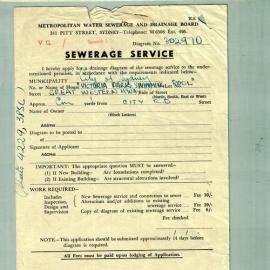 METROPOLITAN WATER SEWERAGE AND DRAINAGE BOARD
341 PITT STREET, SYDNEY—Telephone:
Diagram No. 202910
SEWERAGE SERVICE
I hereby apply for a drainage diagram of the sewerage service to the under-
mentioned premises, in accordance with the requirements indicated below.
MUNICIPALITY City of Sydney
No. or Name of House "VICTORIA PARK SWIMMING POOL"
Street GREAT WESTERN HWY Side of Street
North, South, East or West
Approx. yards from CITY RD Street
Name of Owner
(Block Letters)
Address
Diagram to be posted to
Signature of Applicant
Address
IMPORTANT: The appropriate question MUST be answered:—
(i) If New Building— Are foundations completed?
(ii) If Existing Building— Are structural alterations involved?
WORK REQUIRED:—
Includes New Sewerage service and connection to sewer Fee
Inspection, Alterations and/or additions to existing
Design and sewerage service Fee
Supervision Copy of diagram of existing sewerage service Fee
Fee checked
NOTE:—This application should be submitted approximately 14 days before
diagram is required.
All Fees must be paid upon lodging of Application.